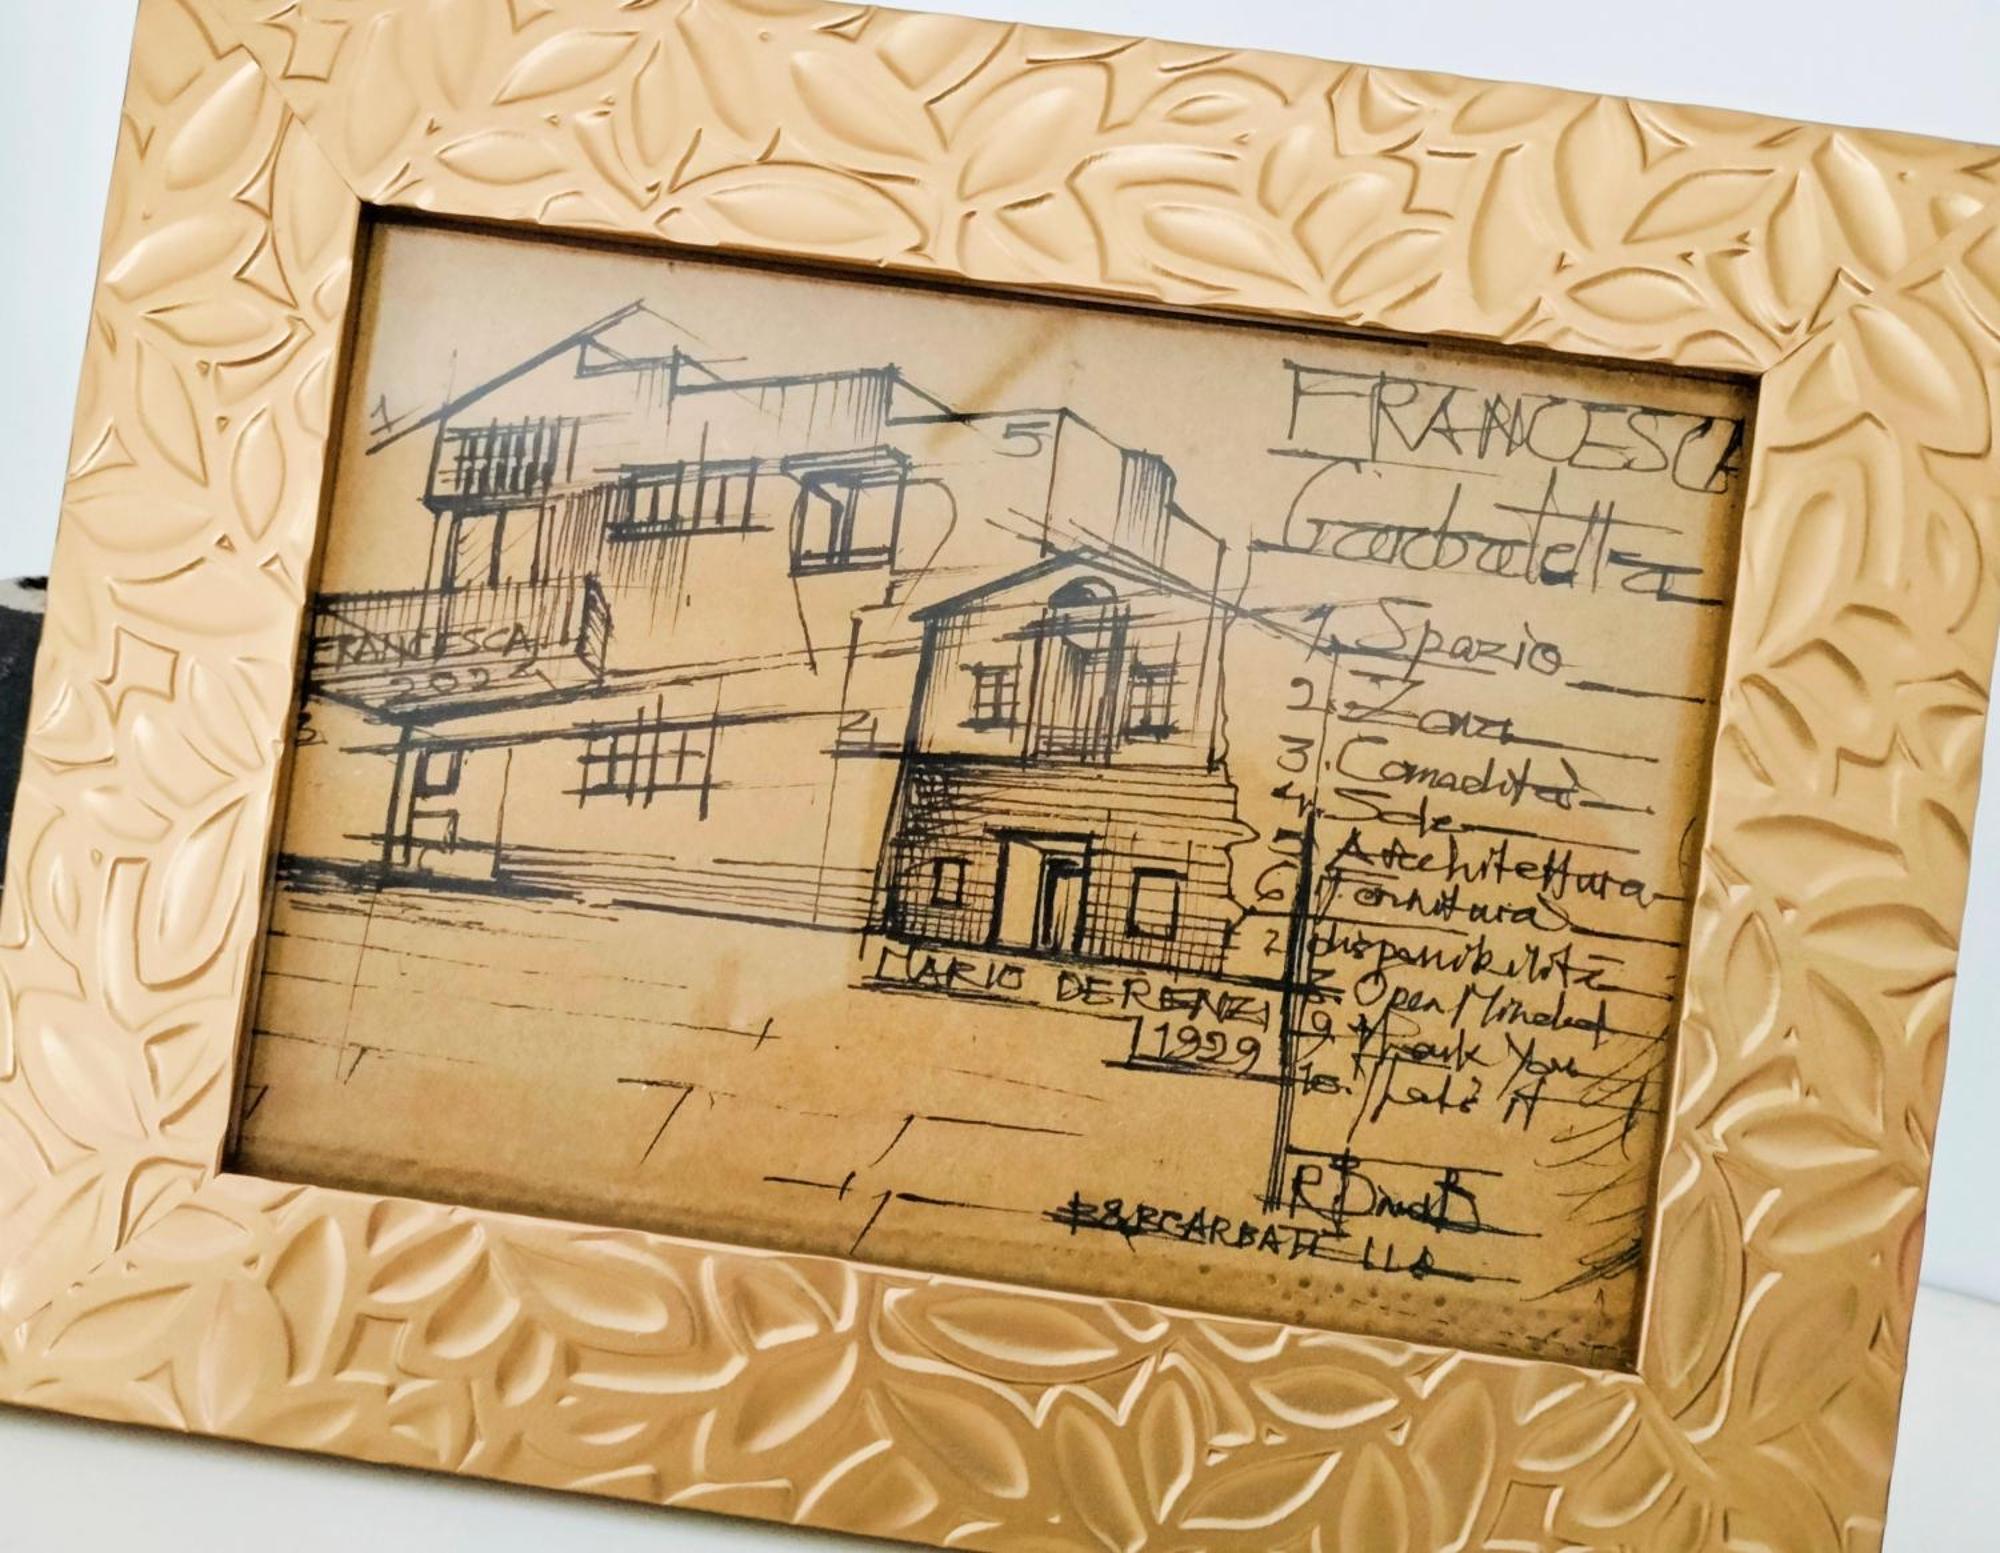 FRANCESCA
Garbatella
1. Spazio
2. Zona
3. Comodità
4. Sole
5 Architettura
6 Fornitura
7 disponibilità
8. Open Minded
9. Thank You
10. That's it
B&BGARBATELLA
MARIO DE RENZI
1929
FRANCESCA
2024
1
5
3